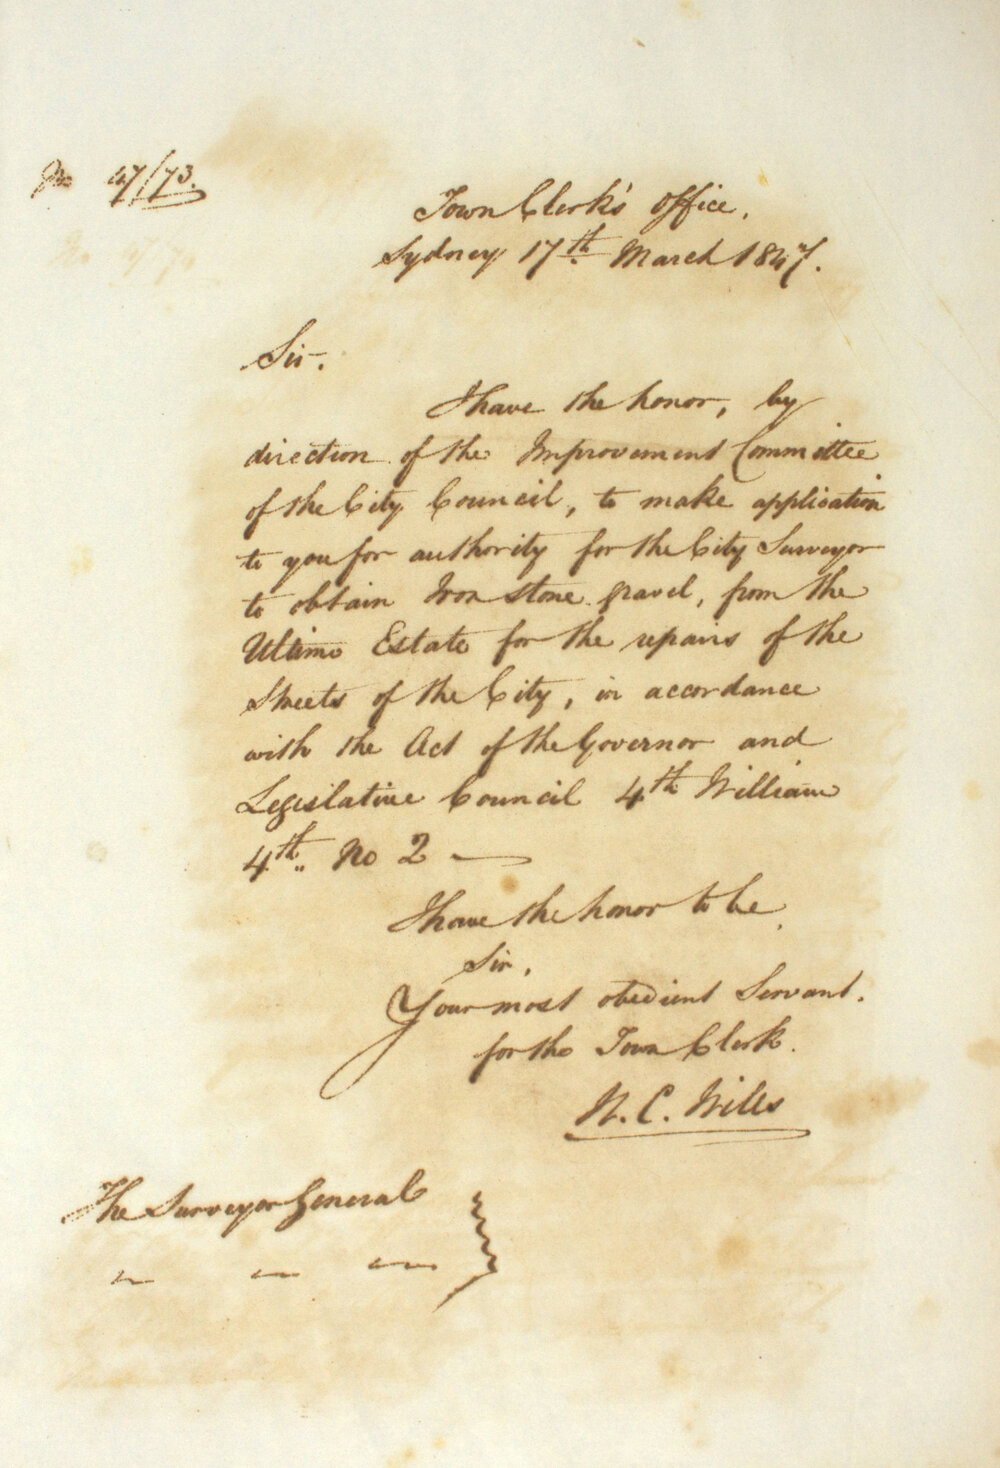 No 47/73.
Town Clerk's Office,
Sydney 17th March 1847.
Sir,
I have the honor, by
direction of the Improvement Committee
of the City Council, to make application
to you for authority for the City Surveyor
to obtain Iron stone gravel, from the
Ultimo Estate for the repairs of the
Streets of the City, in accordance
with the Act of the Governor and
Legislative Council 4th William
4th. No 2 —
I have the honor to be
Sir,
Your most obedient Servant.
for the Town Clerk.
W. C. Wills
The Surveyor General